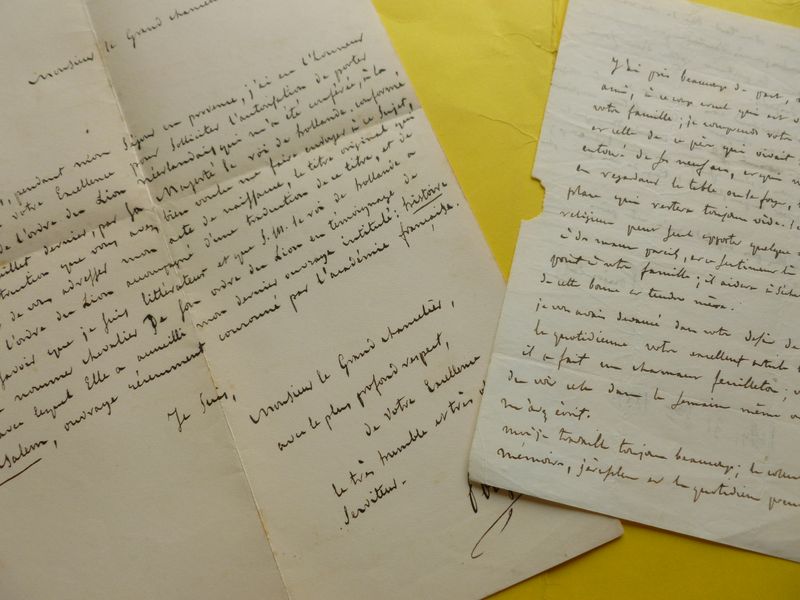 Monsieur le Grand chancelier
pendant mon séjour en province, j'ai eu l'honneur
votre Excellence pour solliciter l'autorisation de porter
de l'ordre du Lion néerlandais qui m'a été conférée, à la
juillet dernier, par sa Majesté le roi de hollande. conformé
que vous avez bien voulu me faire envoyer à ce sujet,
de vous adresser mon acte de naissance, le titre original qui
l'ordre du Lion accompagné d'une traduction de ce titre, et de
savoir que je suis littérateur et que S. M. le roi de hollande a
nommer chevalier De son ordre du Lion en témoignage de
avec lequel Elle a accueilli mon dernier ouvrage intitulé: histoire
salem, ouvrage récemment couronné par l'académie française.
Je suis,
Monsieur le Grand chancelier,
avec le plus profond respect,
de votre Excellence
le très humble et très
Serviteur.
J'ai pris beaucoup de part,
ami, à ce coup cruel qui
votre famille; je comprends votre
et celle de ce père qui vivait
entouré de
en regardant la table ou le foyer,
place qui restera toujours vide.
religion peut seule apporter quelque
à de maux pareils,
à votre famille; il aidera à
de cette bonne et tendre mère.
je vous avais devancé dans votre desir
la quotidienne votre excellent article
il a fait un charmant feuilleton;
de voir cela dans la semaine même
m'avez écrit.
moi je travaille toujours beaucoup; le
mémoires, j'espère et la quotidienne